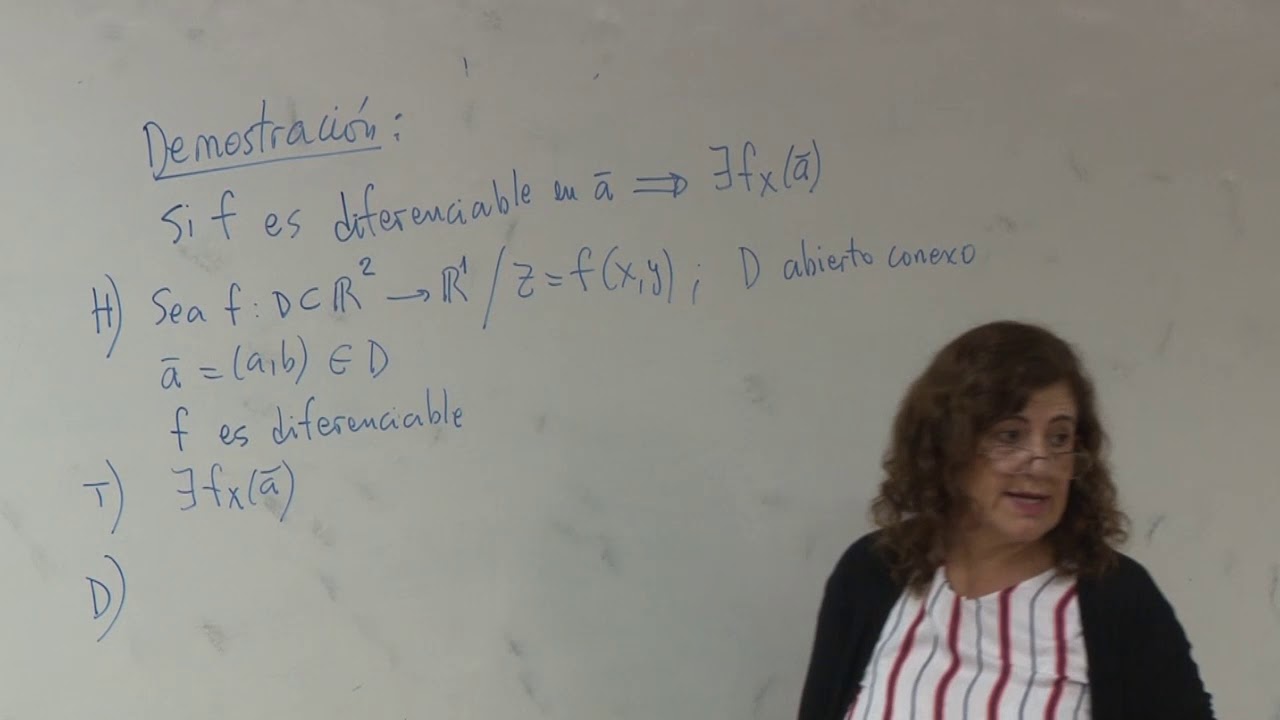 Demostración:
Si f es diferenciable en ā ⟹ ∃ fx(ā)
H) Sea f: D ⊂ ℝ² → ℝ¹ / z = f(x,y) ; D abierto conexo
ā = (a,b) ∈ D
f es diferenciable
T) ∃ fx(ā)
D)